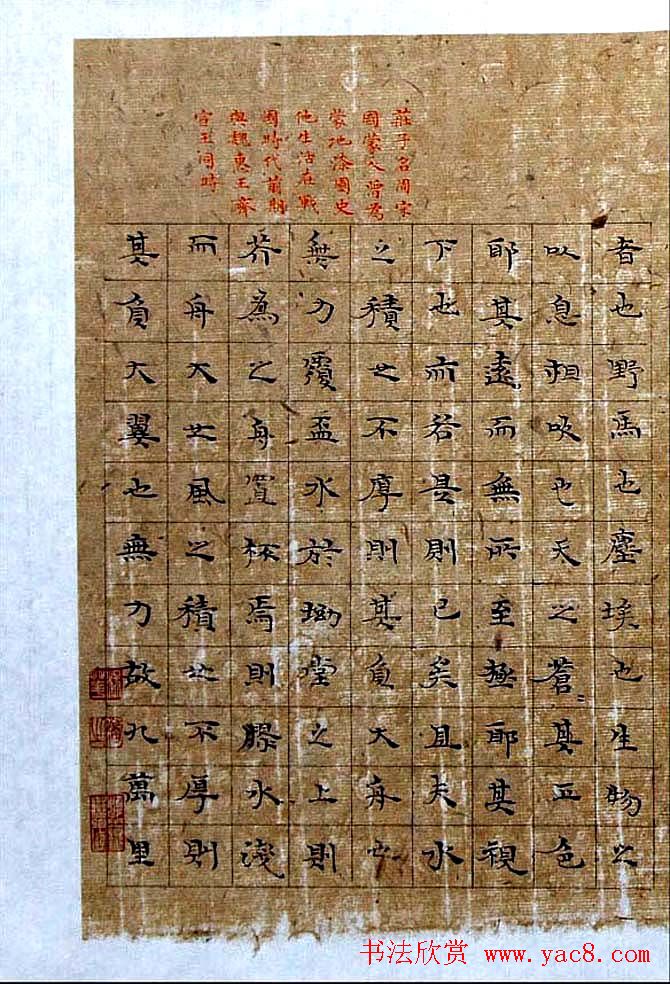 莊子名周宋
國蒙人曾為
蒙地漆園史
他生活在戰
國時代前期
與魏惠王齊
宣王同時
者也野馬也塵埃也生物之
以息相吹也天之蒼〻其正色
耶其遠而無所至極耶其視
下也亦若是則已矣且夫水
之積也不厚則其負大舟也
無力覆盃水於坳堂之上則
芥為之舟置杯焉則膠水淺
而舟大也風之積也不厚則
其負大翼也無力故九萬里
书法欣赏 www.yac8.com